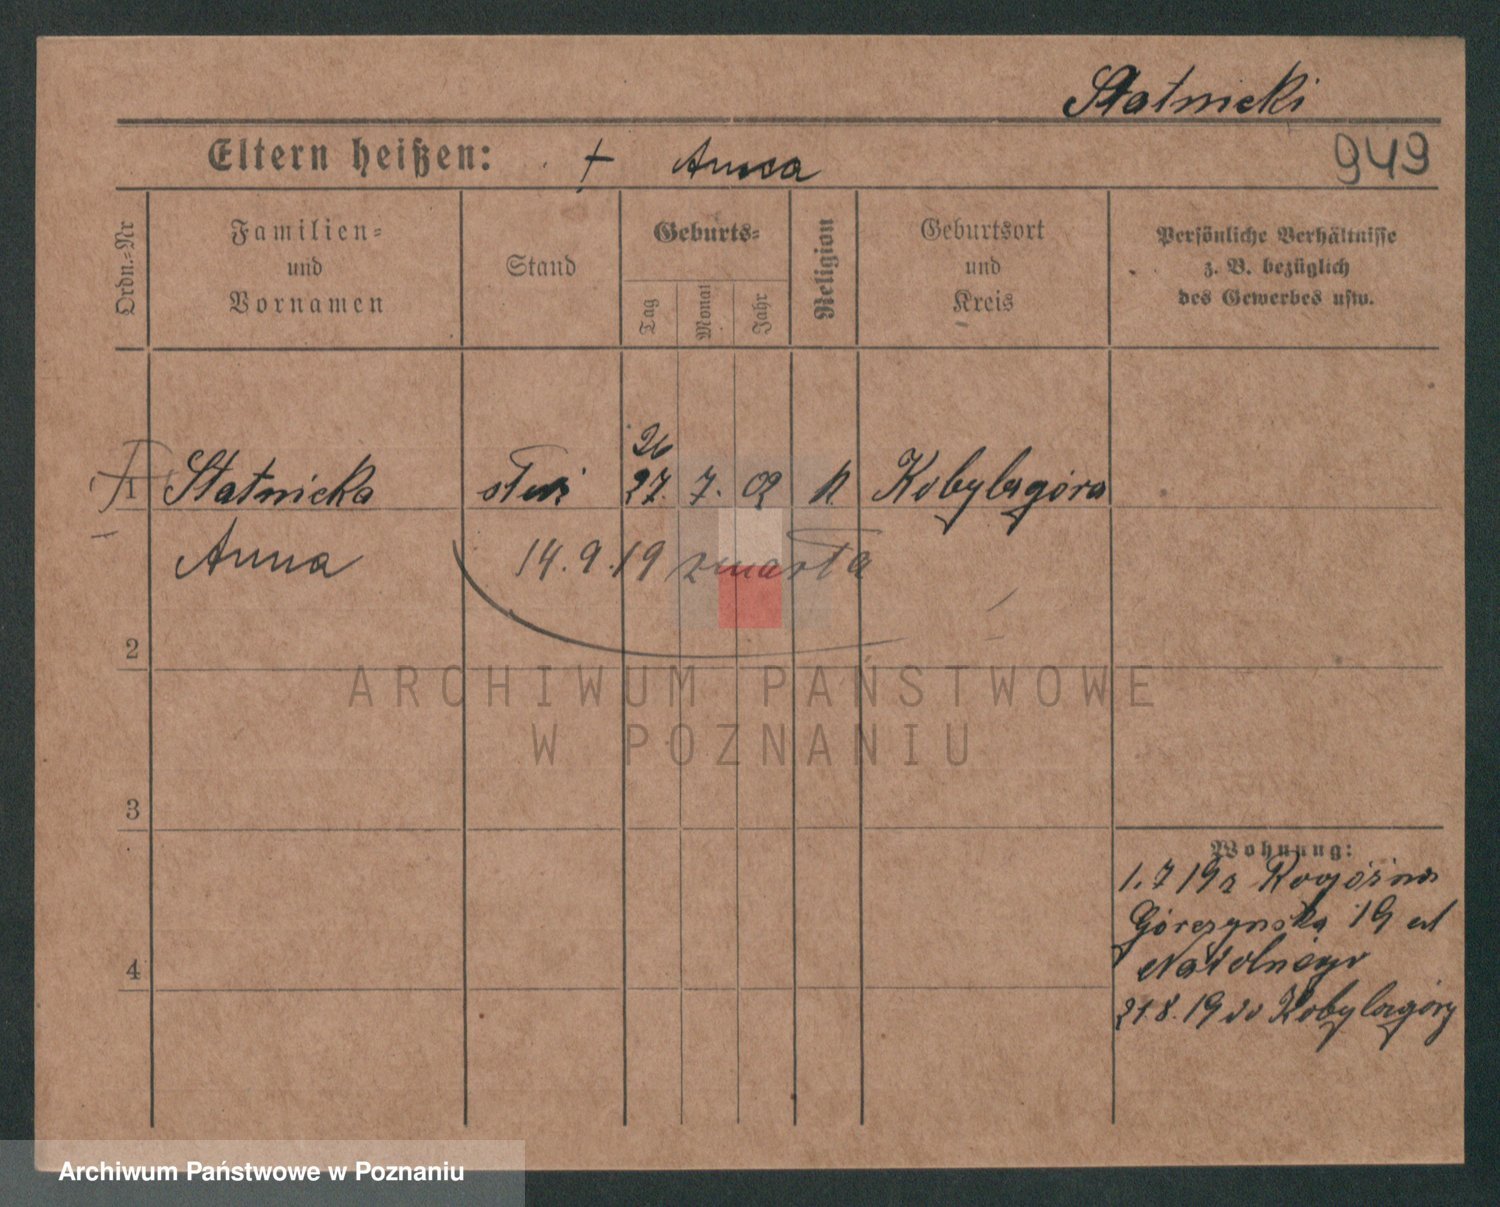 Statnicki
Eltern heißen: + Anna
949
Ordn.-Nr
Familien-
und
Vornamen
Stand
Geburts-
Tag
Monat
Jahr
Religion
Geburtsort
und
Kreis
Persönliche Verhältnisse
z. B. bezüglich
des Gewerbes usw.
26
1 Statnicka służ 27. 7. 02 k. Kobylagóra
Anna 14.9.19 zmarła
2
3
4
Wohnung:
1.7 19 z Rogoźna
Górczynska 19 od
21.8.19 do Kobylagóry
ARCHIWUM PAŃSTWOWE
W POZNANIU
Archiwum Państwowe w Poznaniu